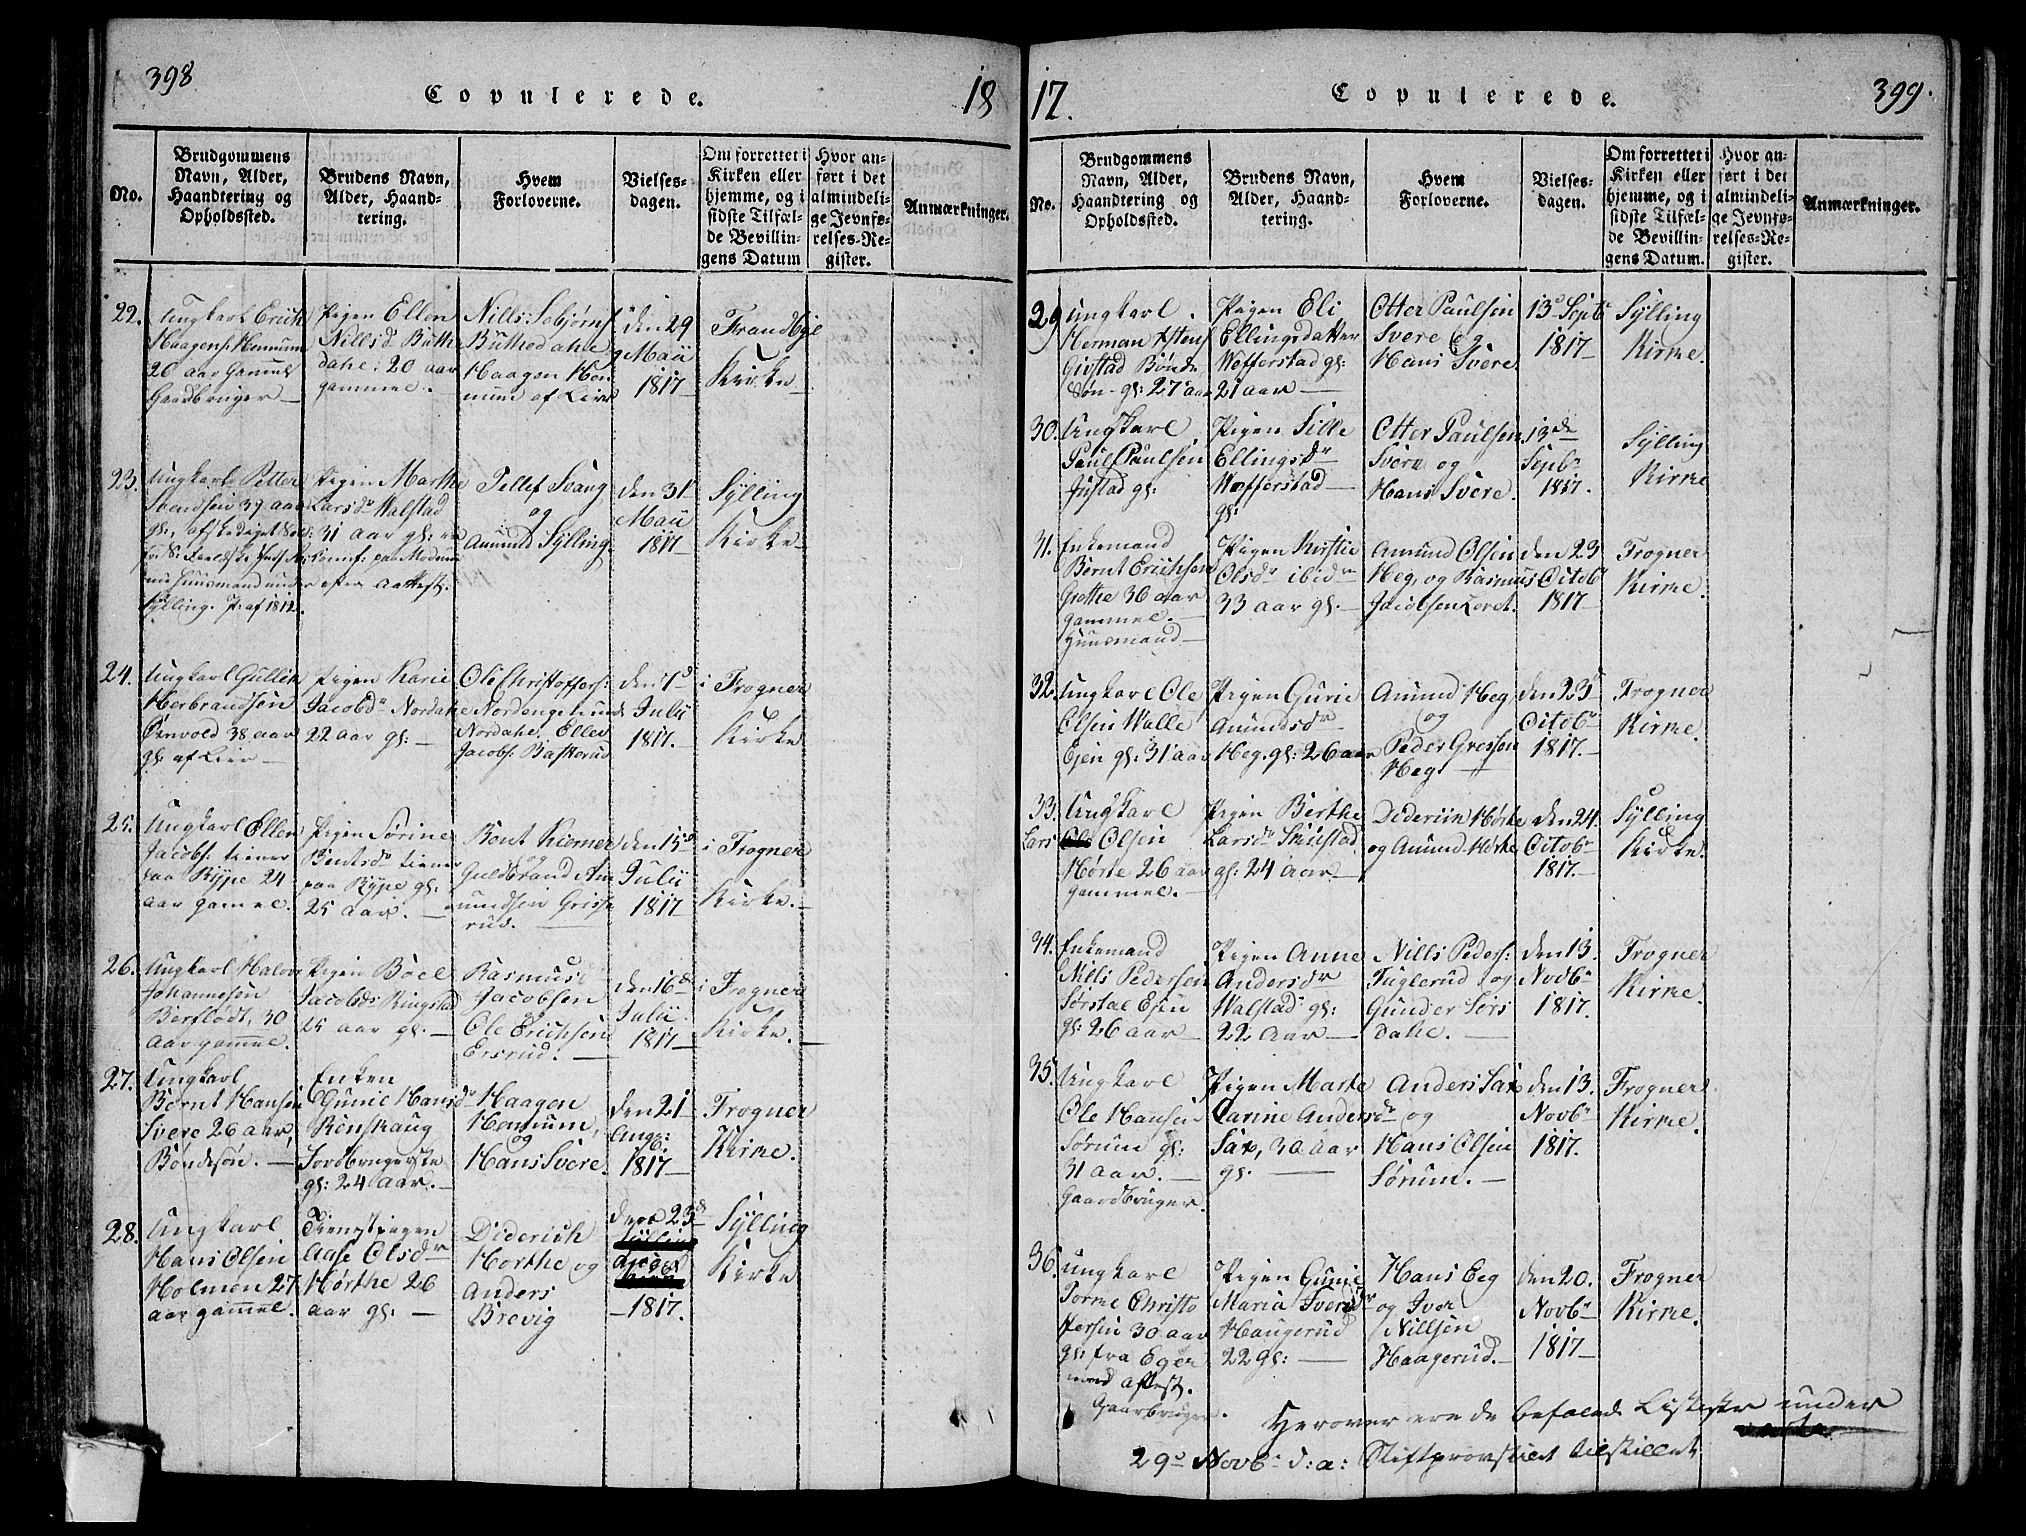 398
Copulerede.
18
No.
Brudgommens
Navn, Alder,
Haandtering og
Opholdssted.
Brudens Navn,
Alder, Haand-
tering.
Hvem
Forloverne.
Vielses-
dagen.
Om forrettet i
Kirken eller
hjemme, og i
sidste Tilfæl-
de Bevillin-
gens Datum
Hvor an-
ført i det
almindeli-
ge Jevnfø-
relses-Re-
gister.
Anmærkninger.
22.
Ungkarl Erich
Haagens: Hennum
26 aar Gammel
Gaardbruger
Pigen Ellen
Nillsd Buthe
dahe: 20 aar
gammel.
Nills: Sebjørns
Buthedahe
Haagen Hen
num af Lier
den 29
Maii
1817
Trandbye
Kirke
23.
Ungkarl Petter
Svendsen 39 aar
Sylling. P: af 1812.
Pigen Marthe
Larsdr Walstad
31 aar gl:
efter aattest.
Tellef Svang
og
Amund Sylling.
den 31
Maii
1817
Sylling
Kirke
24.
Ungkarl Gullik
Herbrandsen
Ørnvold 38 aar
gl: af Lier
Pigen Karie
Jacobdr Nordahe
22 aar gl:
Ole Christoffers:
Nordengen und
Nordahe. Ellev
Jacobs: Baskerud
den 1d
Julii
1817.
i Frogner
Kirke
25.
Ungkarl Ellen
Jacobs: tiener
paa Rype 24
aar gamel.
Pigen Sørine
Bentsdr tiener
paa Rype gl:
25 aar.
Bent Kiemer
og
Guldbrand Am
undsen Grisse
rud.
den 15d
Julii
1817
i Frogner
Kirke.
26.
Ungkarl Halvor
Johannesen
Berflødt, 30
aar gammel.
Pigen Boel
Jacobds Ringstad
25 aar gl.
Rasmus
Jacobsen
og
Ole Erichsen
Ersrud.
den 16de
Julii
1817
i Frogner
Kirke.
27.
Ungkarl
Bernt Hansen
Svere 26 aar,
Bondesøn.
Enken
Gunie Hansdr
Renskaug
Jordbrugerske
gl: 24 aar.
Haagen
Hennum,
og
Hans Svere.
den 21
Aug:
1817
Frogner
Kirke.
28.
Ungkarl
Hans Olsen
Holmen 27
aar gammel.
Tienstpigen
Aase Olsdr
Hørthe 26
aar gl:
Diderich
Horthe og
Anders
Brevig
den 23de
1817.
Sylling
Kirke
17.
Copulerede.
399.
No.
Brudgommens
Navn, Alder,
Haandtering og
Opholdssted.
Brudens Navn,
Alder, Haand-
tering.
Hvem
Forloverne.
Vielses-
dagen.
Om forrettet i
Kirken eller
hjemme, og i
sidste Tilfæl-
de Bevillin-
gens Datum.
Hvor an-
ført i det
almindeli-
ge Jevnfø-
relses-Re-
gister.
Anmærkninger.
29
Ungkarl.
Herman Astens
Givstad Bonde
Søn gl: 27 aar
Pigen Eli
Ellingsdatter
Wefferstad gl:
21 aar
Otter Paulsen
Svere og
Hans Svere
13d Septbr
1817
Sylling
Kirke.
30.
Ungkarl
Paul Paulsen
Justad gl:
Pigen Sille
Ellingsdr
Wefferstad
gl:
Otter Paulsen
Svere og
Hans Svere.
13de
Sepbr
1817.
Sylling
Kirke
31.
Enkemand
Bernt Erichsen
Grette 36 aar
gammel.
Huusmand
Pigen Kirstie
Olsdr ibidm
33 aar gl.
Amund Olsen
Heg, og Rasmus
Jacobsen Loret.
den 23
Octobr
1817
Frogner
Kirke.
32.
Ungkarl Ole
Olsen Walle
Ejen gl: 31 aar
Pigen Gurie
Amundsdr
Heg. gl: 26 aar
Amund Heg
og
Peder Gressen
Heg.
den 23d
Octobr
1817.
Frogner
Kirke.
33.
Ungkarl
Lars Olsen
Hørte 26 aar
gammel.
Pigen Berthe
Larsdr Skustad
gl: 24 Aar
Dideriin Hørte
og Amund Hørte
den 24.
Octobr
1817.
Sylling
Kirke.
34.
Enkemand
Nills Pedersen
Sørstae Ejen
gl: 26 aar
Pigen Anne
Andersdr
Walstad gl:
22 Aar
Nills Peders:
Fuglerud og
Gunder Sørs
dahe.
den 13.
Novbr
1817.
Frogner
Kirke.
35.
Ungkarl
Ole Hansen
Sørum gl:
31 aar.
Gaardbruger.
Pigen Marte
Carine Andersdr
Sax, 30 Aar
gl.
Anders Sax
og
Hans Olsen
Sørum.
den 13.
Novbr
1817.
Frogner
Kirke.
36.
Ungkarl
Torme Christo
ffersen 30 aar
gl: fra Eger
med Attest.
Gaarbruger.
Pigen Gunie
Maria Iversdr
Haugerud
22 gl:
Hans Eeg
og Iver
Nillsen
Haagerud.
den 20.
Novbr
1817
Frogner
Kirke.
Herover ere de befalede Listester under
29d Novbr d: a: Stiftprovstiet tilstillet